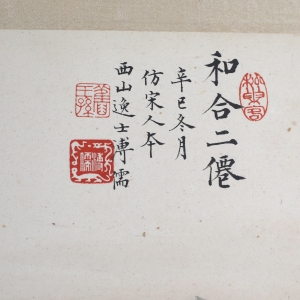 和合二僊
辛巳冬月
仿宋人本
西山逸士溥儒